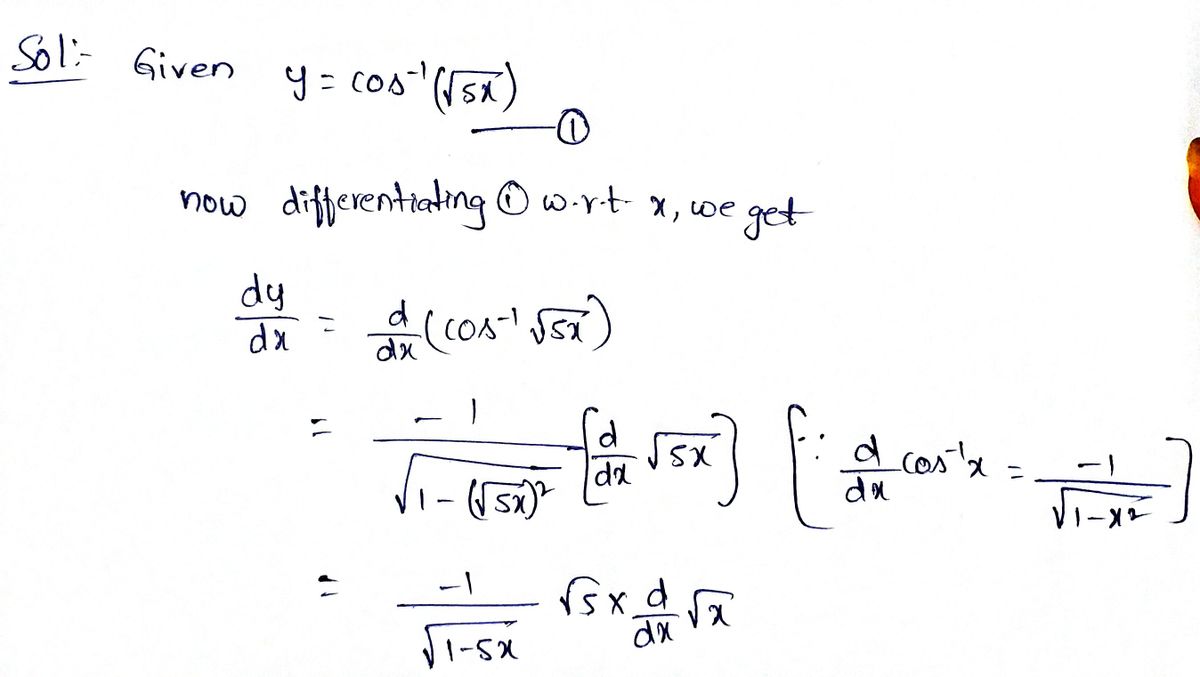 Sol:- Given y = cos⁻¹(√5x) —— ①
now differentiating ① w.r.t. x, we get
dy/dx = d/dx (cos⁻¹ √5x)
= -1/√(1-(√5x)²) [d/dx √5x] [∵ d/dx cos⁻¹x = -1/√(1-x²)]
= -1/√(1-5x) √5 × d/dx √x